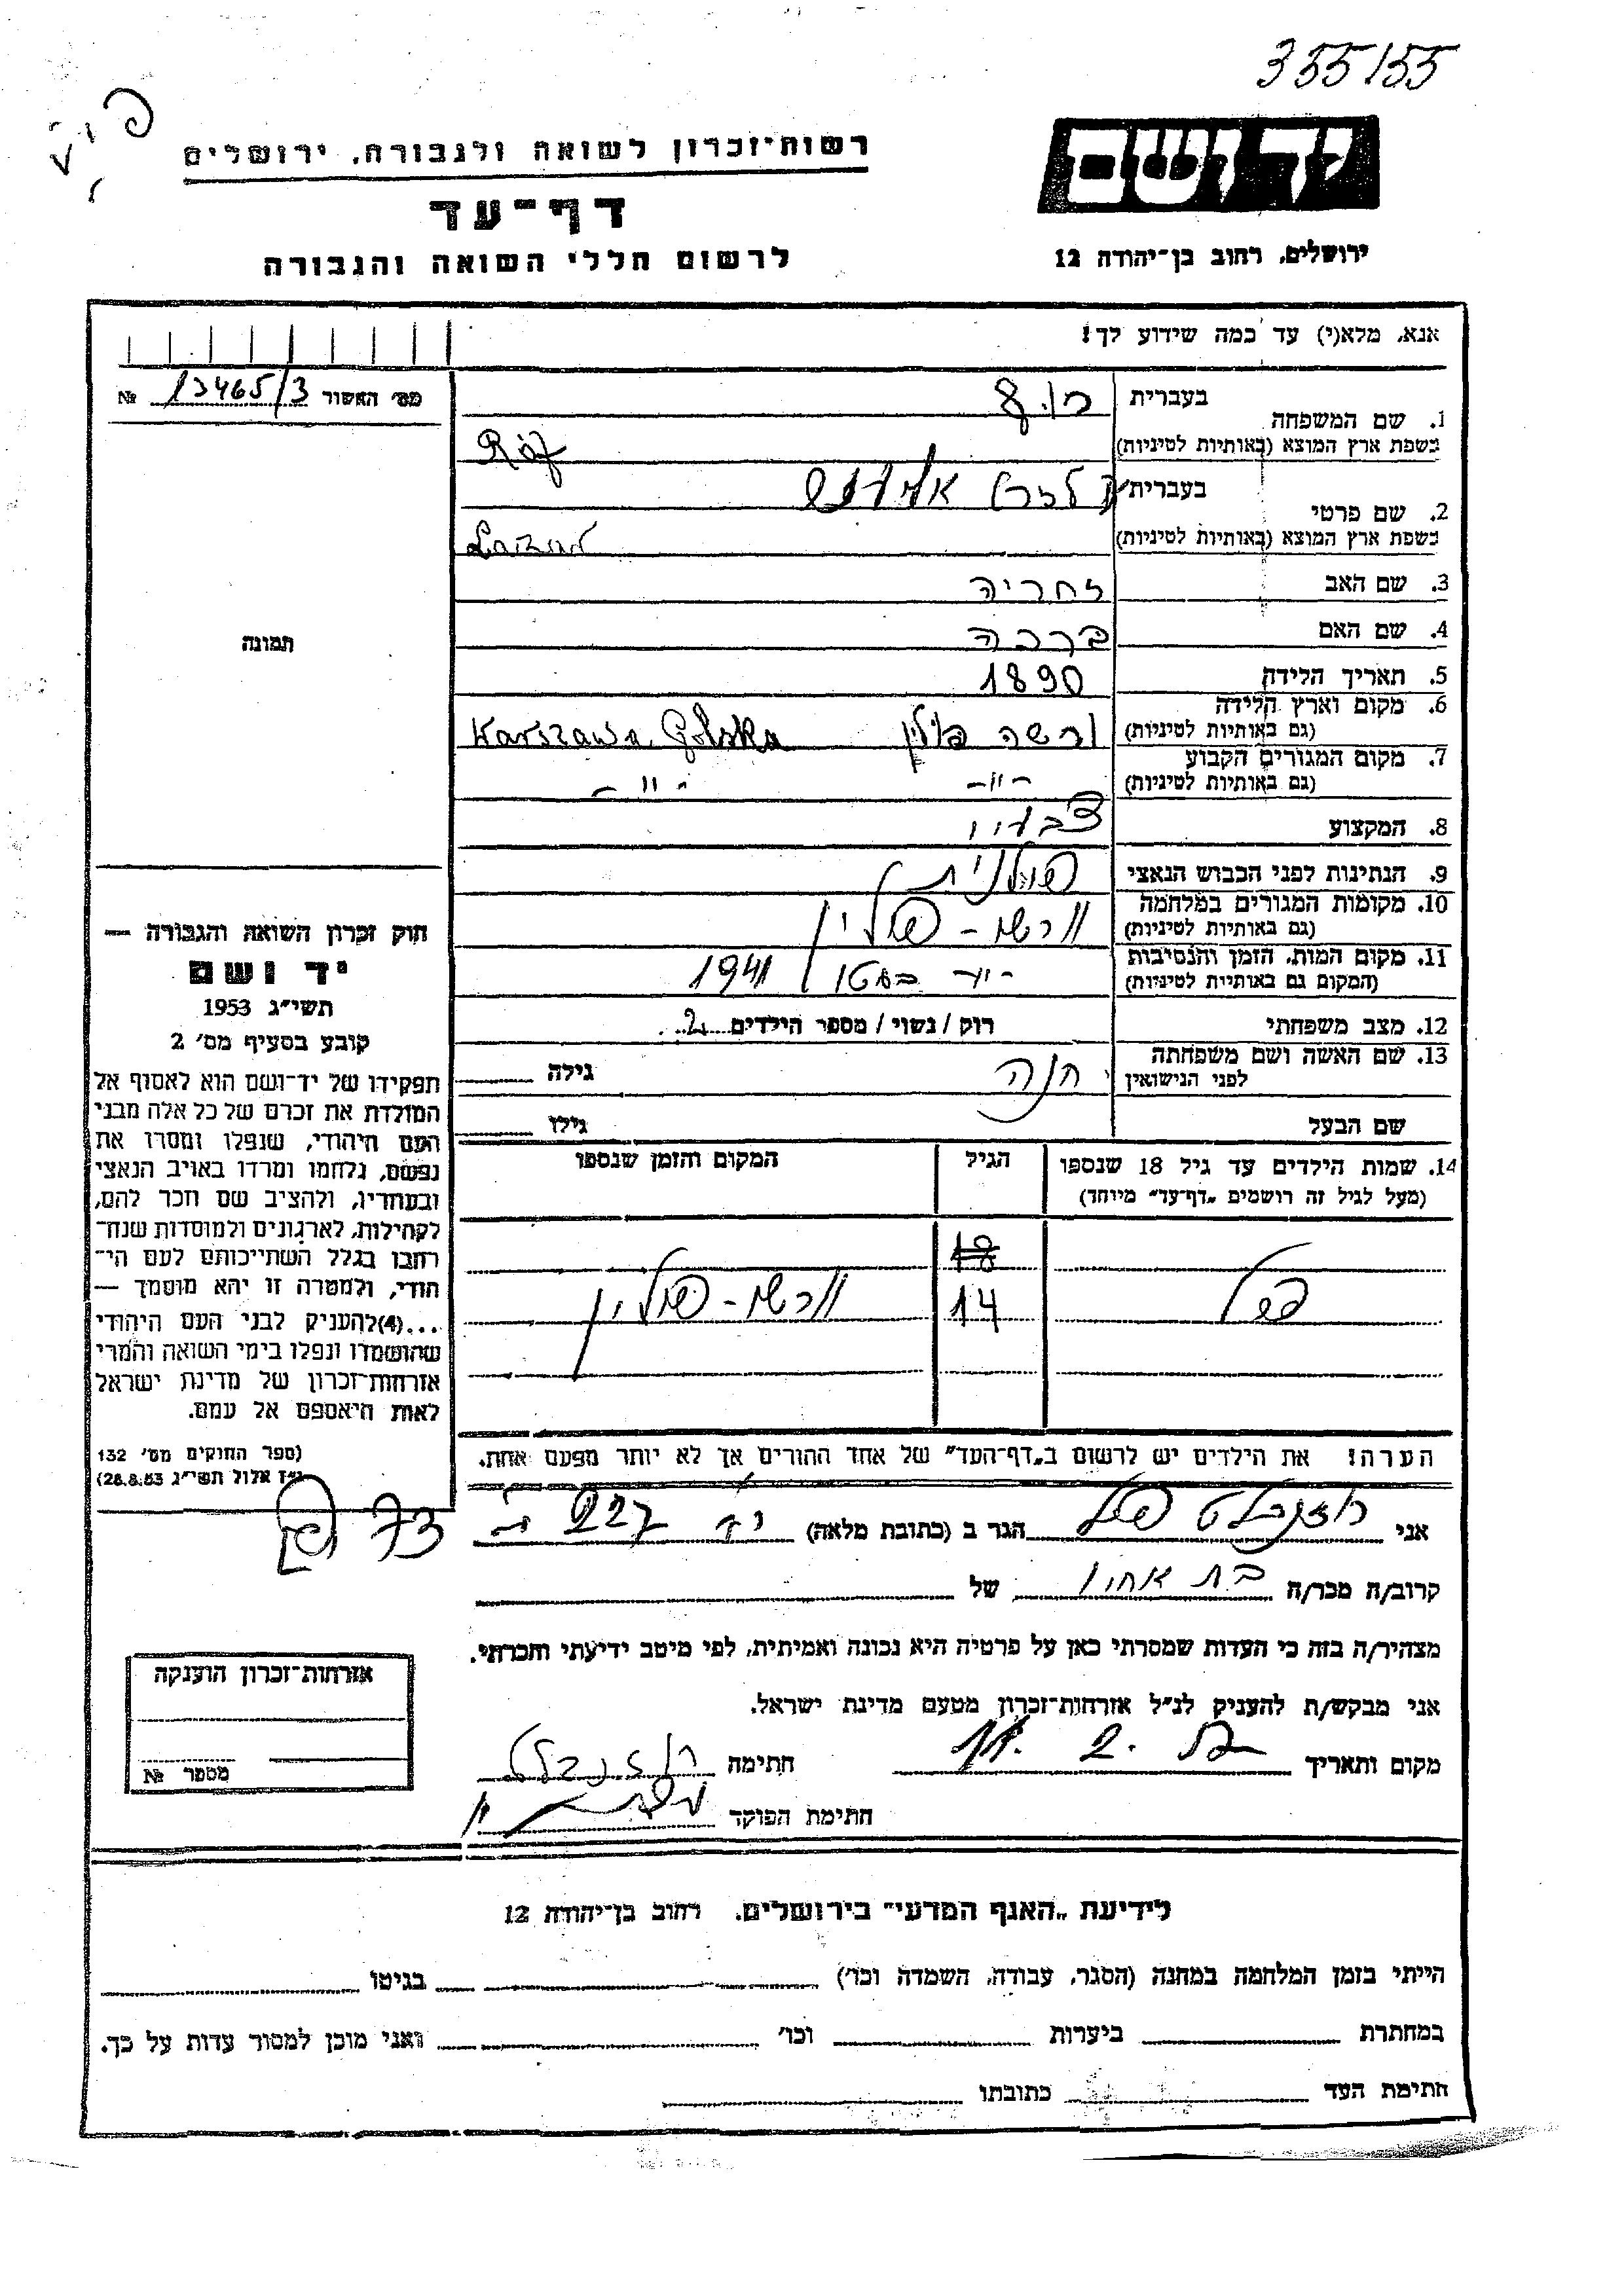 355155
רשות־זכרון לשואה ולגבורה, ירושלים
דף־עד
לרשום חללי השואה והגבורה
יד ושם
ירושלים, רחוב בן־יהודה 12
אנא, מלא(י) עד כמה שידוע לך!
מס׳ האשור 13465/3 №
תמונה
1. שם המשפחה בעברית
בשפת ארץ המוצא (באותיות לטיניות)
2. שם פרטי בעברית
בשפת ארץ המוצא (באותיות לטיניות)
3. שם האב זחריה
4. שם האם ברכה
5. תאריך הלידה 1890
6. מקום וארץ הלידה ורשה פולין Warszawa Polska
(גם באותיות לטיניות)
7. מקום המגורים הקבוע -"- -"-
(גם באותיות לטיניות)
8. המקצוע
9. הנתינות לפני הכבוש הנאצי פולנית
10. מקומות המגורים במלחמה ורשו - פולין
(גם באותיות לטיניות)
11. מקום המות, הזמן והנסיבות 1941
(המקום גם באותיות לטיניות)
12. מצב משפחתי רווק / נשוי / מספר הילדים 2
13. שם האשה ושם משפחתה חנה גילה
לפני הנישואין
שם הבעל גילו
14. שמות הילדים עד גיל 18 שנספו הגיל המקום והזמן שנספו
(מעל לגיל זה רושמים „דף־עד״ מיוחד)
18
14 ורשו - פולין
הערה! את הילדים יש לרשום ב„דף־העד״ של אחד ההורים אך לא יותר מפעם אחת.
חוק זכרון השואה והגבורה —
יד ושם
תשי״ג 1953
קובע בסעיף מס׳ 2
תפקידו של יד־ושם הוא לאסוף אל
המולדת את זכרם של כל אלה מבני
העם היהודי, שנפלו ומסרו את
נפשם, נלחמו ומרדו באויב הנאצי
ובעוזריו, ולהציב שם וזכר להם,
לקהילות, לארגונים ולמוסדות שנח־
רבו בגלל השתייכותם לעם הי־
הודי, ולמטרה זו יהא מוסמך —
...(4)להעניק לבני העם היהודי
שהושמדו ונפלו בימי השואה והמרי
אזרחות־זכרון של מדינת ישראל
לאות היאספם אל עמם.
(ספר החוקים מס׳ 132
י״ז אלול תשי״ג 28.8.53)
אני הגר ב (כתובת מלאה) 227
קרוב/ה מכר/ה בת אחיו של
מצהיר/ה בזה כי העדות שמסרתי כאן על פרטיה היא נכונה ואמיתית, לפי מיטב ידיעתי והכרתי.
אני מבקש/ת להעניק לנ״ל אזרחות־זכרון מטעם מדינת ישראל.
מקום ותאריך חתימה
חתימת הפוקד
אזרחות־זכרון הוענקה
מספר №
לידיעת „האגף המדעי״ בירושלים, רחוב בן־יהודה 12
הייתי בזמן המלחמה במחנה (הסגר, עבודה, השמדה וכו׳) בגיטו
במחתרת ביערות וכו׳ ואני מוכן למסור עדות על כך.
חתימת העד כתובתו